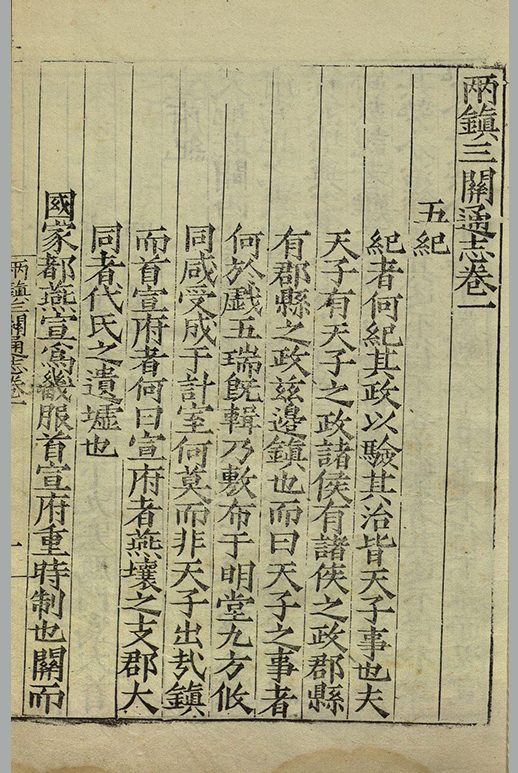 兩鎮三關通志卷一
五紀
紀者何紀其政以驗其治皆天子事也夫
天子有天子之政諸侯有諸侯之政郡縣
有郡縣之政兹邊鎮也而曰天子之事者
何於戲五瑞旣輯乃敷布于明堂九方攸
同咸受成于計室何莫而非天子出㢤鎮
而首宣府者何曰宣府者燕壤之支郡大
同者代氏之遺墟也
國家都燕宣爲畿服首宣府重時制也關而
兩鎮三關通志卷一
一